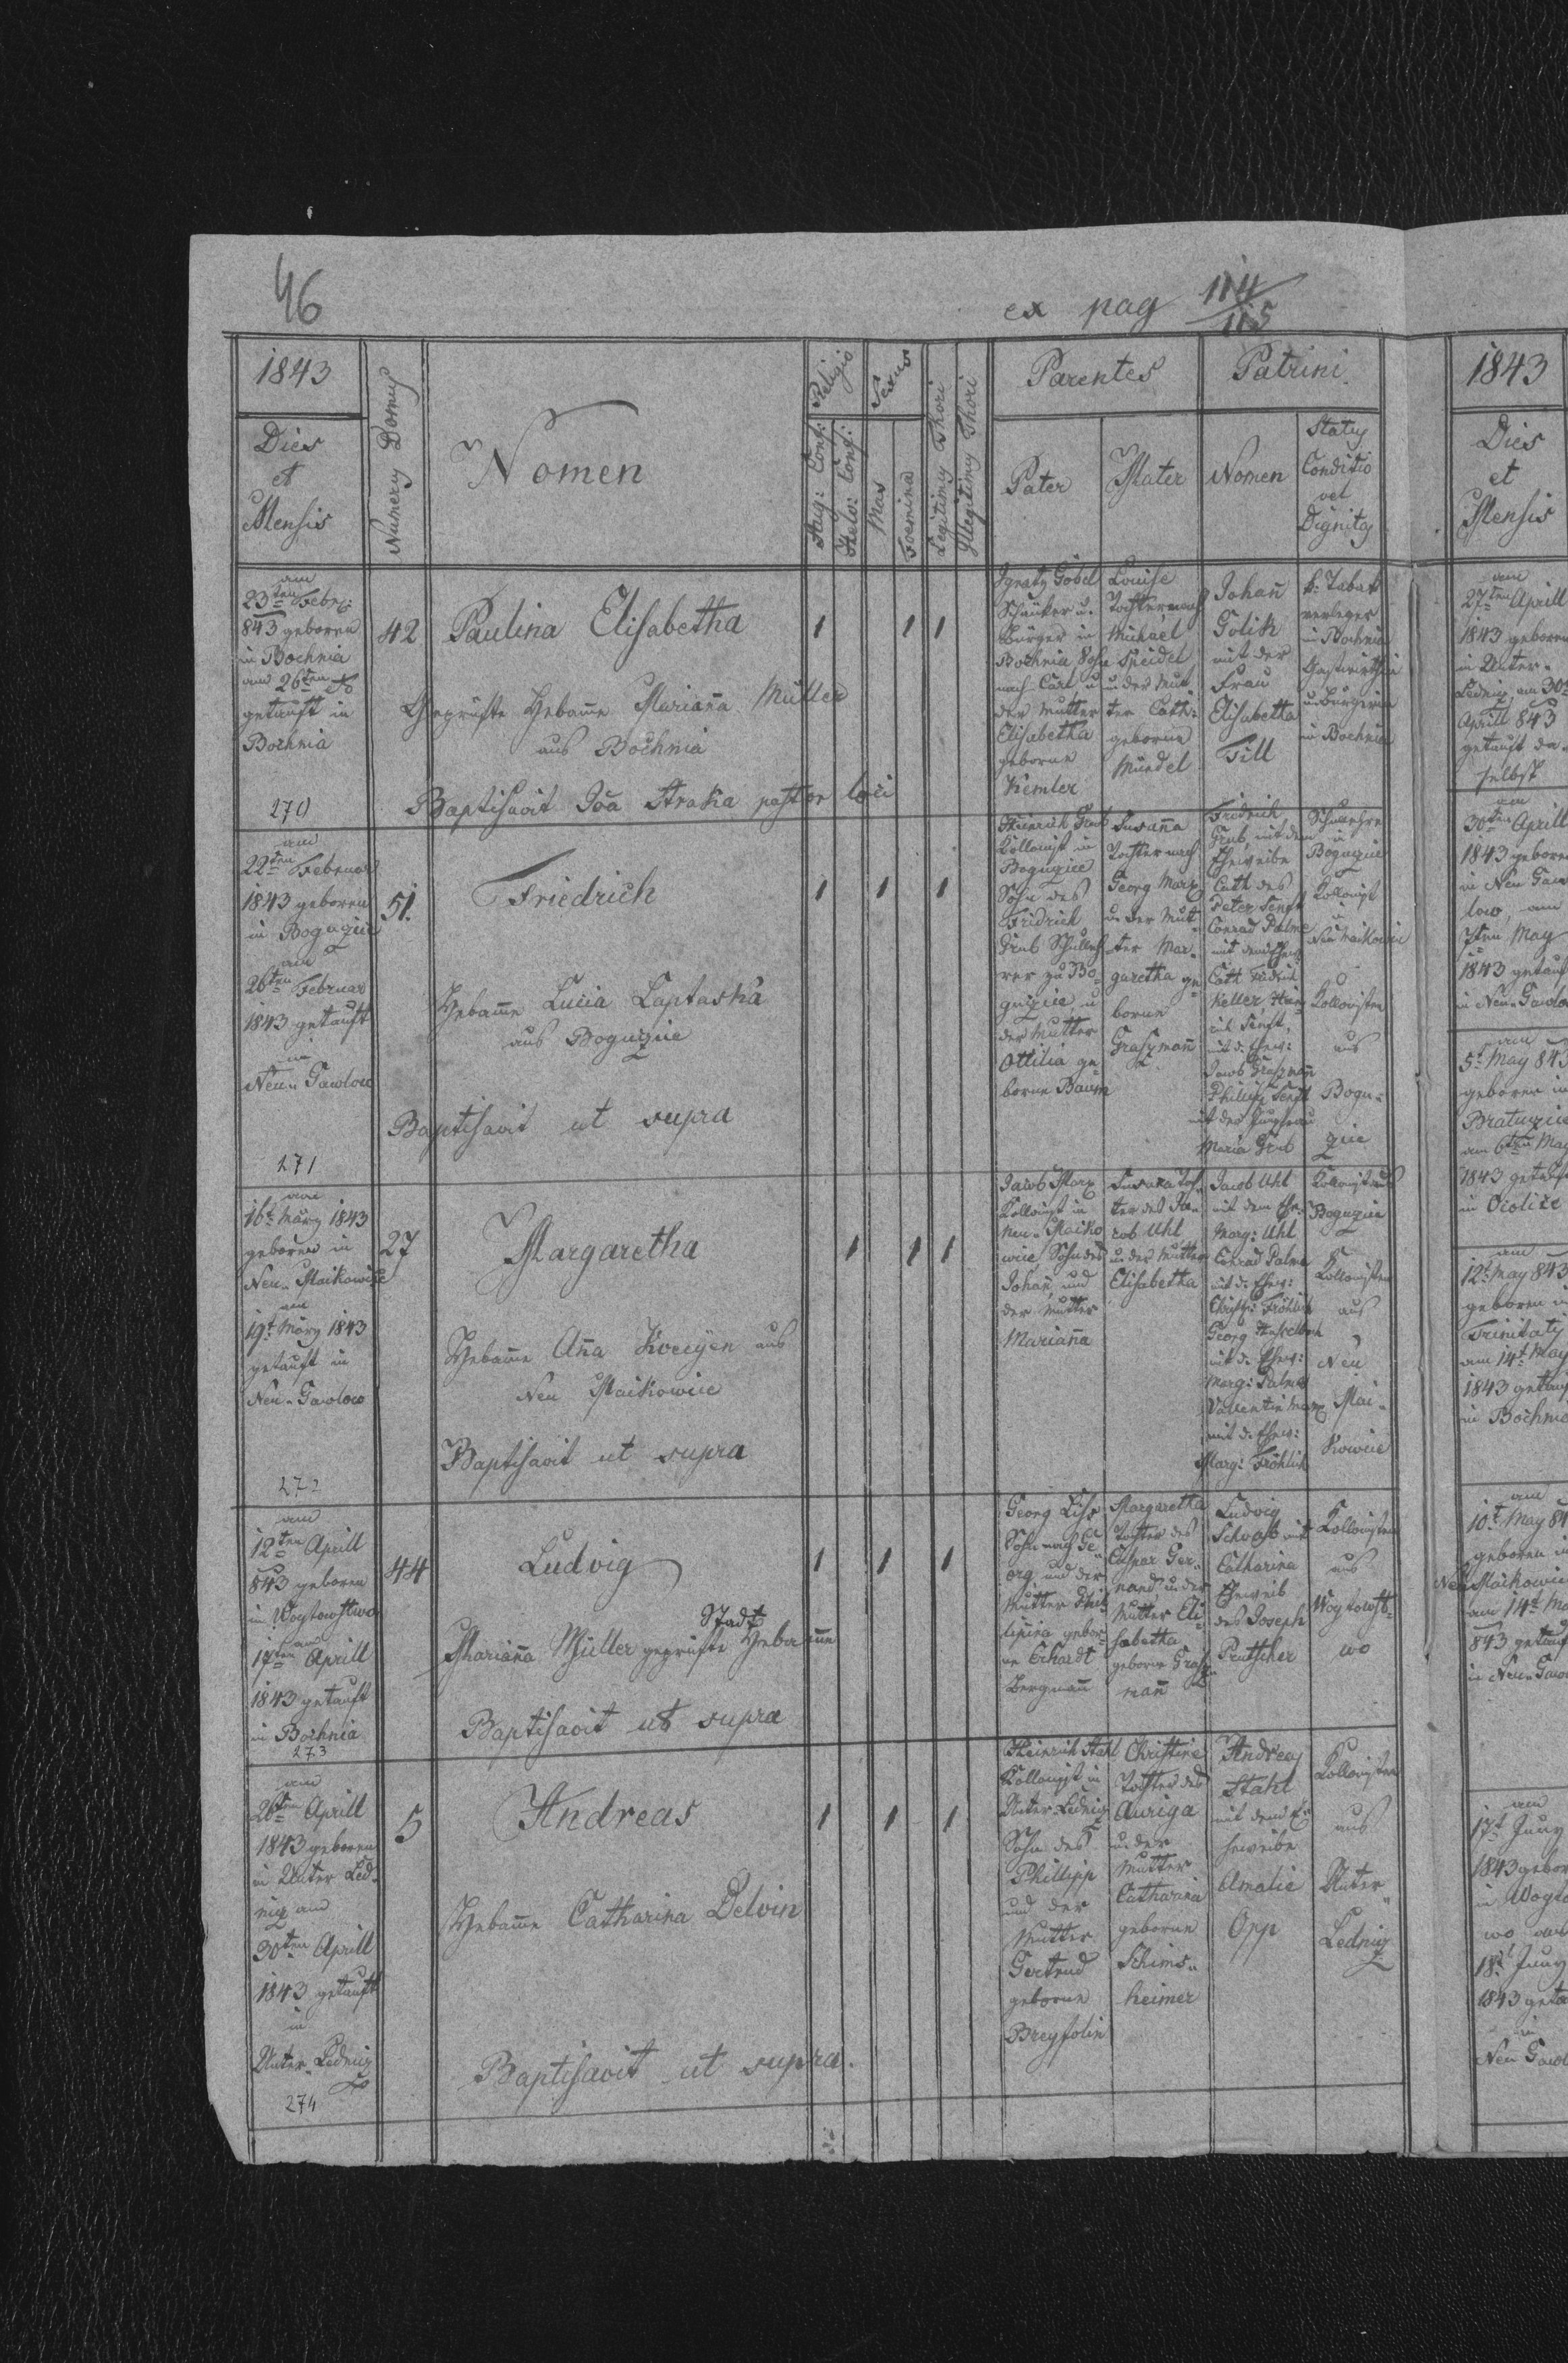 46
ex pag 114/115
1843
Numerus Domus
Nomen
Religio
Sexus
Legitimi Thori
Illegitimi Thori
Parentes
Patrini
Dies
et
Mensis
Aug: Conf:
Helv: Conf:
Mas
Foemina
Pater
Mater
Nomen
Status
Conditio
vel
Dignitas
am
23ten Febr:
843 geboren
in Bochnia
am 26ten do
getauft in
Bochnia
270
42
Paulina Elisabetha
Geprüfte Hebame Mariana Müller
aus Bochnia
Baptisavit Joa Straka pastor loci
1
1
1
Ignatz Göbel
Schänker u.
Bürger in
Bochnia Sohn
nach Carl u
der Mutter
Elisabetha
geborne
Kemler
Louise
Tochter nach
Michael
Speidel
u der Mut
ter Cath:
geborne
Mündel
Johañ
Golik
mit der
Frau
Elisabetha
Till
k: Tabak
verleger
in Bochnia
Gastwirthin
u Bürgerin
in Bochnia
am
22ten Februar
1843 geboren
in Boguzice
am
26ten Februar
1843 getauft
in
Neu-Gawlow
271
51.
Friedrich
Hebame Lucia Laptaska
aus Boguzice
Baptisavit ut supra
1
1
1
Heinrich Grub
Kollonist in
Boguzice
Sohn des
Fridrich
Grub Schulleh
rer zu Bo-
guzice u
der Mutter
Ottilia ge-
borne Baum
Susaña
Tochter nach
Georg Marx
u. der Mut-
ter Mar-
garetha ge-
borne
Graszmañ
Fridrich
Grub, mit dem
Eheweibe
Cath des
Peter Senft
Conrad Palme
mit dem Ehew:
Cath Fridrich
Keller,
mit Senft,
mit d. Ehew:
Jacob Graszmañ
Philipp Senft
mit der Jungfrau
Maria Grub
Schullehrer
in
Boguzice
Kollonist
in
Neu Maikowice
Kollonisten
aus
Bogu-
zice
am
16t März 1843
geboren in
Neu-Maikowice
am
19t März 1843
getauft in
Neu-Gawlow
272
27
Margaretha
Hebame Aña aus
Neu Maikowice
Baptisavit ut supra
1
1
1
Jacob Marx
Kollonist in
Neu-Maiko
wice, Sohn des
Johañ und
der Mutter
Mariaña
Susaña Toch-
ter des Ja-
cob Uhl
u. der Mutter
Elisabetha
Jacob Uhl
mit dem Ehe:
Marg: Uhl
Conrad Palme
mit d. Ehew:
Christ: Fröhlich
Georg Haselbach
mit d. Ehew:
Marg: Palme
Valentin Marx
mit d. Ehew:
Marg: Fröhlich
Kollonist aus
Boguzice
Kollonisten
aus
Neu
Mai-
kowice
am
12ten Aprill
843 geboren
in Woytowstwo
am
17ten Aprill
1843 getauft
in Bochnia
273
44
Ludvig
Stadt
Mariaña Müller geprüfte Hebame
Baptisavit ut supra
1
1
1
Georg
Sohn nach Ge-
org und der
Mutter Phil-
lipina gebor-
ne Erhardt
Bergmañ
Margaretha
Tochter des
Caspar Ger-
nand u. der
Mutter Eli-
sabetha
geborne Grasz-
mañ
Ludvig
Schwob mit
Catharina
Eheweib
des Joseph
Prutscher
Kollonisten
aus
Woytowst-
wo
am
26t Aprill
1843 geboren
in Unter Led-
nig am
30ten Aprill
1843 getauft
in
Unter Lednig
274
5
Andreas
Hebame Catharina Delvin
Baptisavit ut supra.
1
1
1
Heinrich Stahl
Kollonist in
Unter Lednig
Sohn des
Phillipp
und der
Mutter
Gertrud
geborne
Breyfolin
Christine
Tochter des
Auriga
u. der
Mutter
Catharina
geborne
Schims-
heimer
Andreas
Stahl
mit dem E-
heweibe
Amalie
Opp
Kollonisten
aus
Unter
Lednig
1843
Dies
et
Mensis
am
27ten Aprill
1843 geboren
in Unter-
Lednig am 30t
Aprill 843
getauft da-
selbst
am
30ten Aprill
1843 geboren
in Neu Gaw
low, am
7ten May
1843 getauf
in Neu-Gawlo
am
5t May 843
geboren in
Bratuzice
am 6ten May
1843 getauf
in
am
12t May 843
geboren in
Trinitatis
am 14t May
1843 getauf
in Bochnia
am
10t May 84
geboren in
Neu Maikowice
am 14t Ma
843 getauf
in Neu-Gaw
am
17t Juny
1843 gebor
in Woyto
wo am
18t Juny
1843 geta
in
Neu Gawl